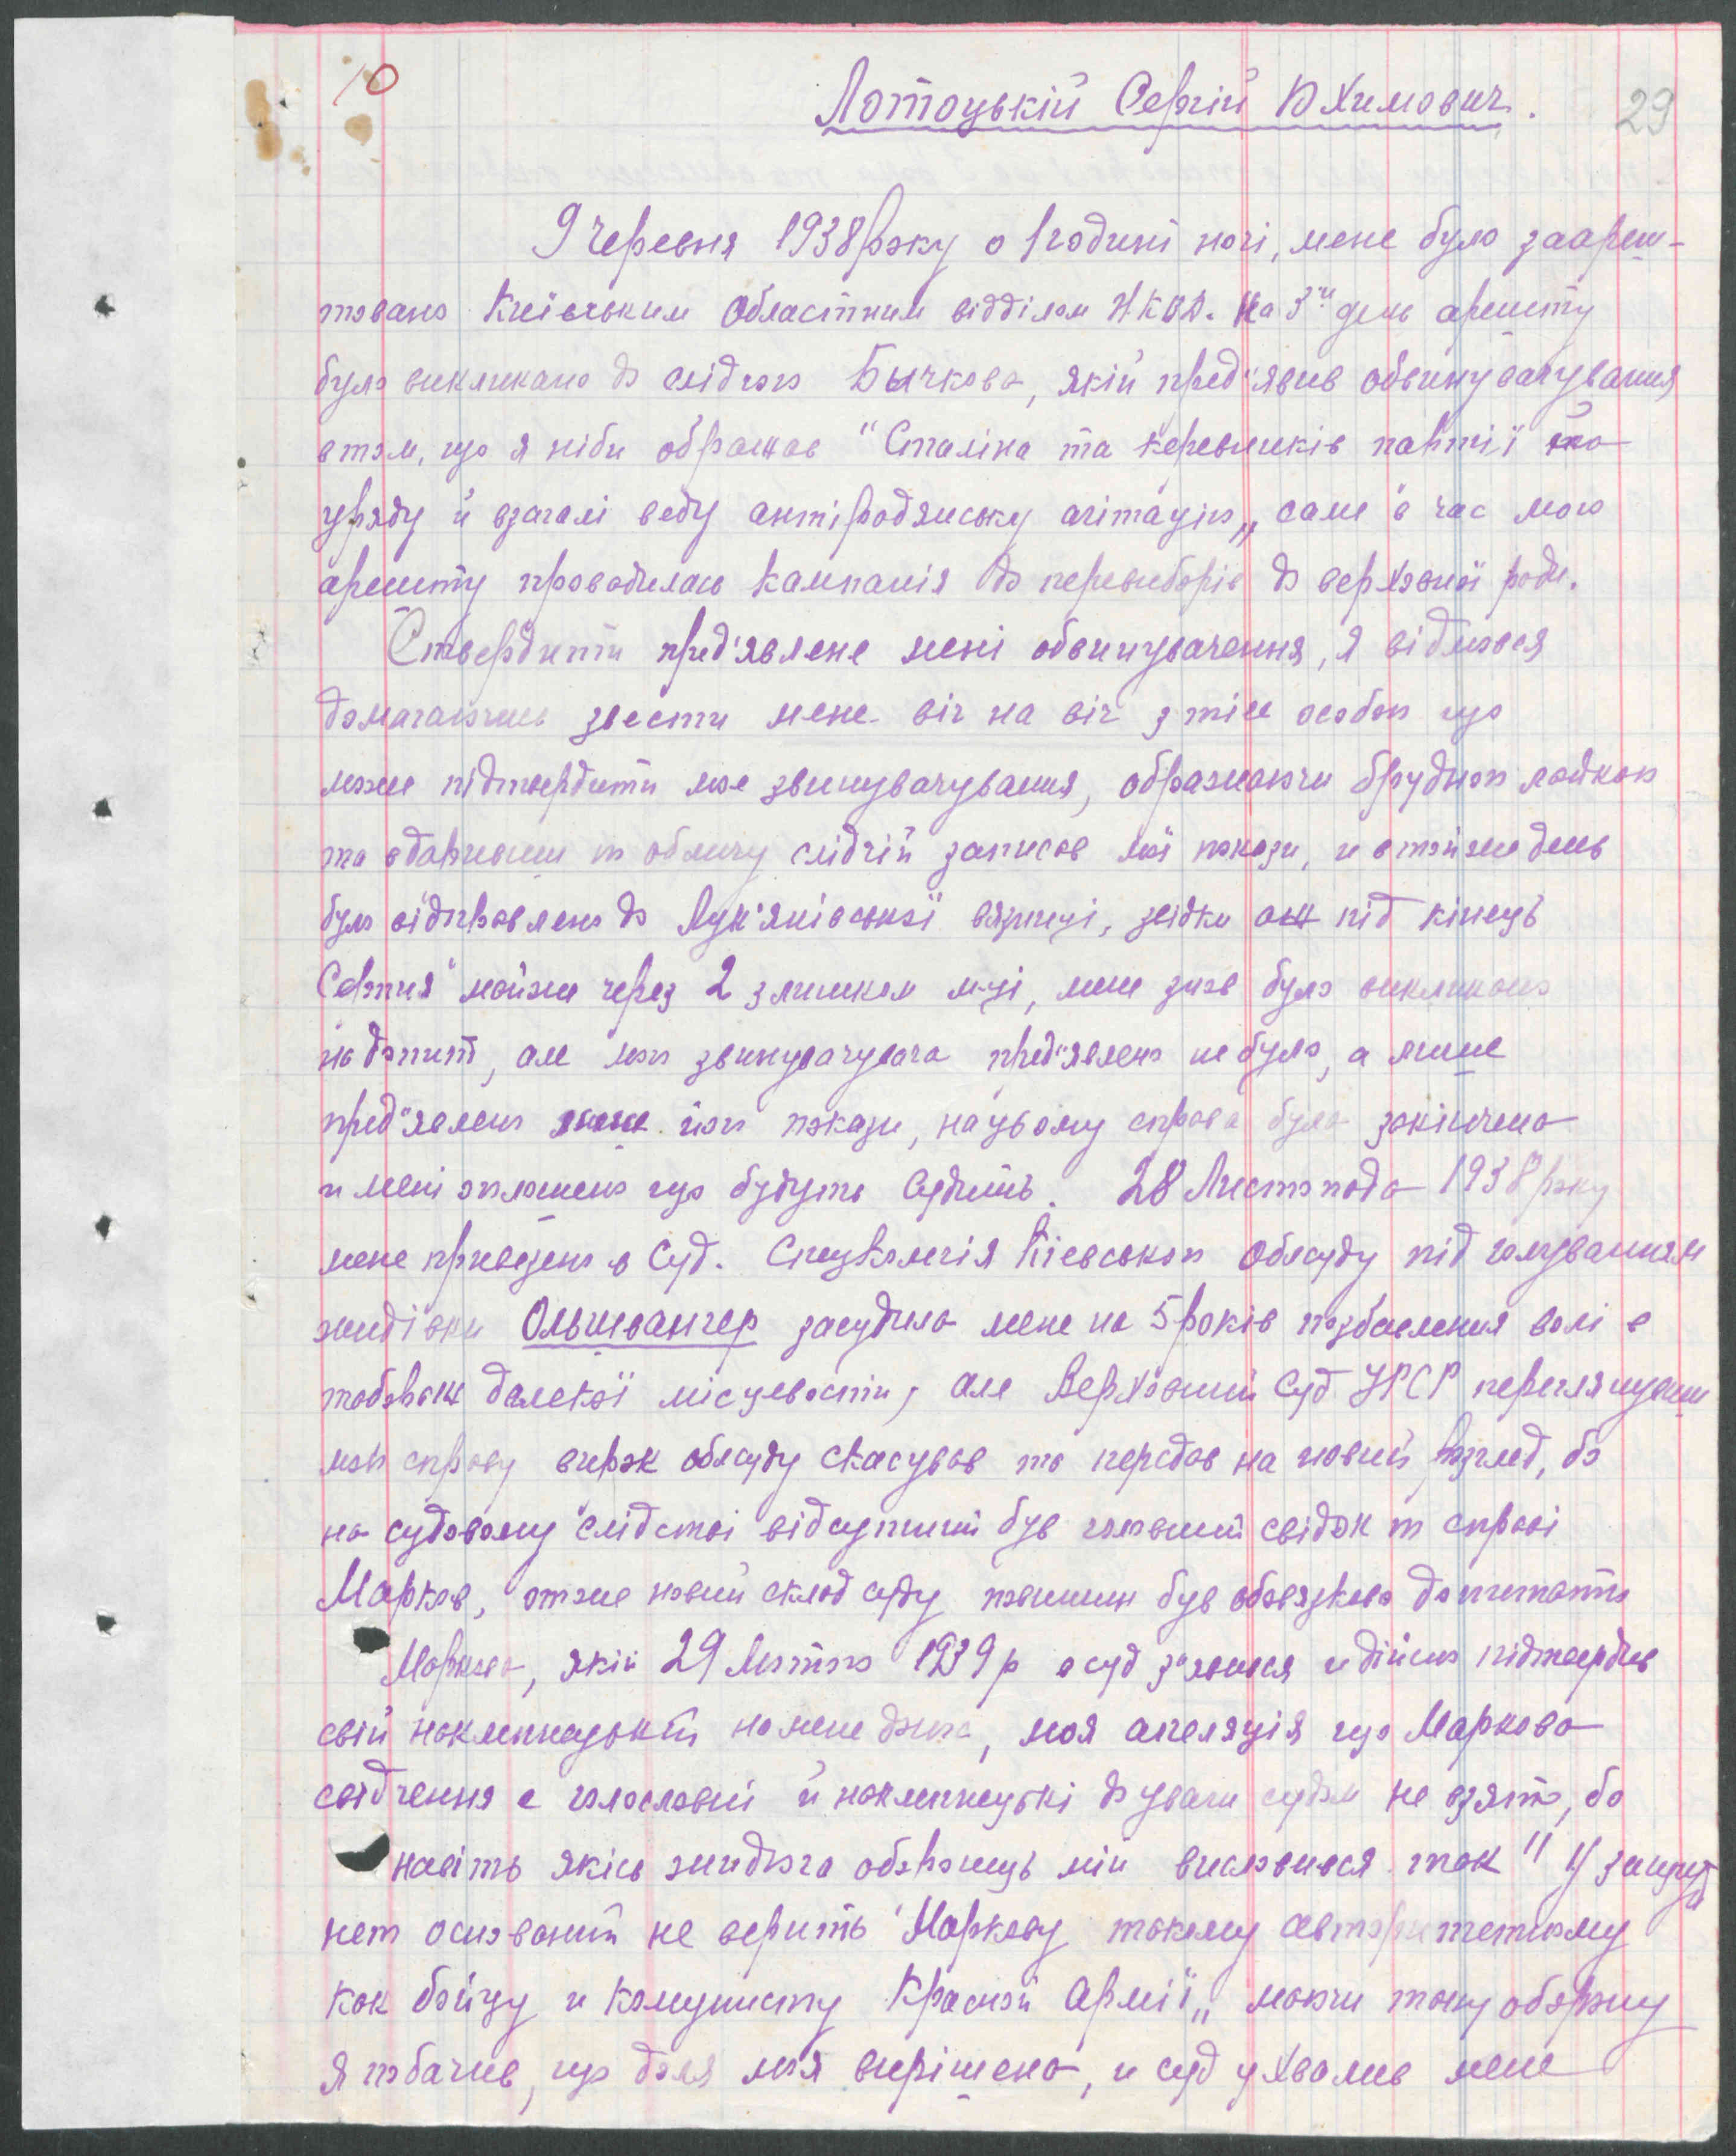 10
Лотоцькій Сергій Юхимович.
29
9 червня 1938 року о 1 годині ночі, мене було заареш-
товано Київським Областним відділом НКВД. На 3й день арешту
було викликано до слідчого Бычкова, якій пред'явив обвинувачування
в том, що я ніби ображав "Сталіна та керевників партії та
уряду й взагалі веду антірадянську агітацію„ саме в час мого
арешту проводилась кампанія до перевиборів до верховної ради.
Ствердити пред'явлене мені обвинувачення, я відмовся
домагаючись звести мене віч на віч з тією особою що
може підтвердити моє звинувачування, ображаючи брудною лайкою
та вдаривши по обличу слідчій записав мої покази, и в той же день
було відправлено до Лук'янівської вязниці, звідки аж під кінець
Серпня майже через 2 злишком м-ці, мене знов було викликано
на допит, але мого звинувачувача пред'явлено не було, а лише
пред'явлено його покази, на цьому справа була закінчена
и мені оголошено що будуть судить. 28 Листопада 1938 року
мене приведено в Суд. Спецколегія Кіевського Облсуду під голуванням
жидівки Ольшвангер засудила мене на 5 років позбавлення волі в
таборах далекої місцевости, але Верховний Суд УРСР переглянувши
мою справу вирок облсуду скасував та передав на новий розгляд, бо
на судовому слідстві відсутний був головний свідок по справі
Марков, отже новий склад суду повинен був обов'язково допитати
Маркова, якій 29 Лютого 1939 р в суд з'явився и дійсно підтвердив
свій наклепницькій на мене донос, моя апеляція що Маркова
свідчення є голословні й наклепницькі до уваги судом не взято, бо
навіть якійсь жидюга оборонець мій висловився так "У защиты
нет основаній не верить Маркову такому авторитетному
как бойцу и комунисту Красной Армії„ маючи таку оборону
я побачив, що доля моя вирішена, и суд ухвалив мене